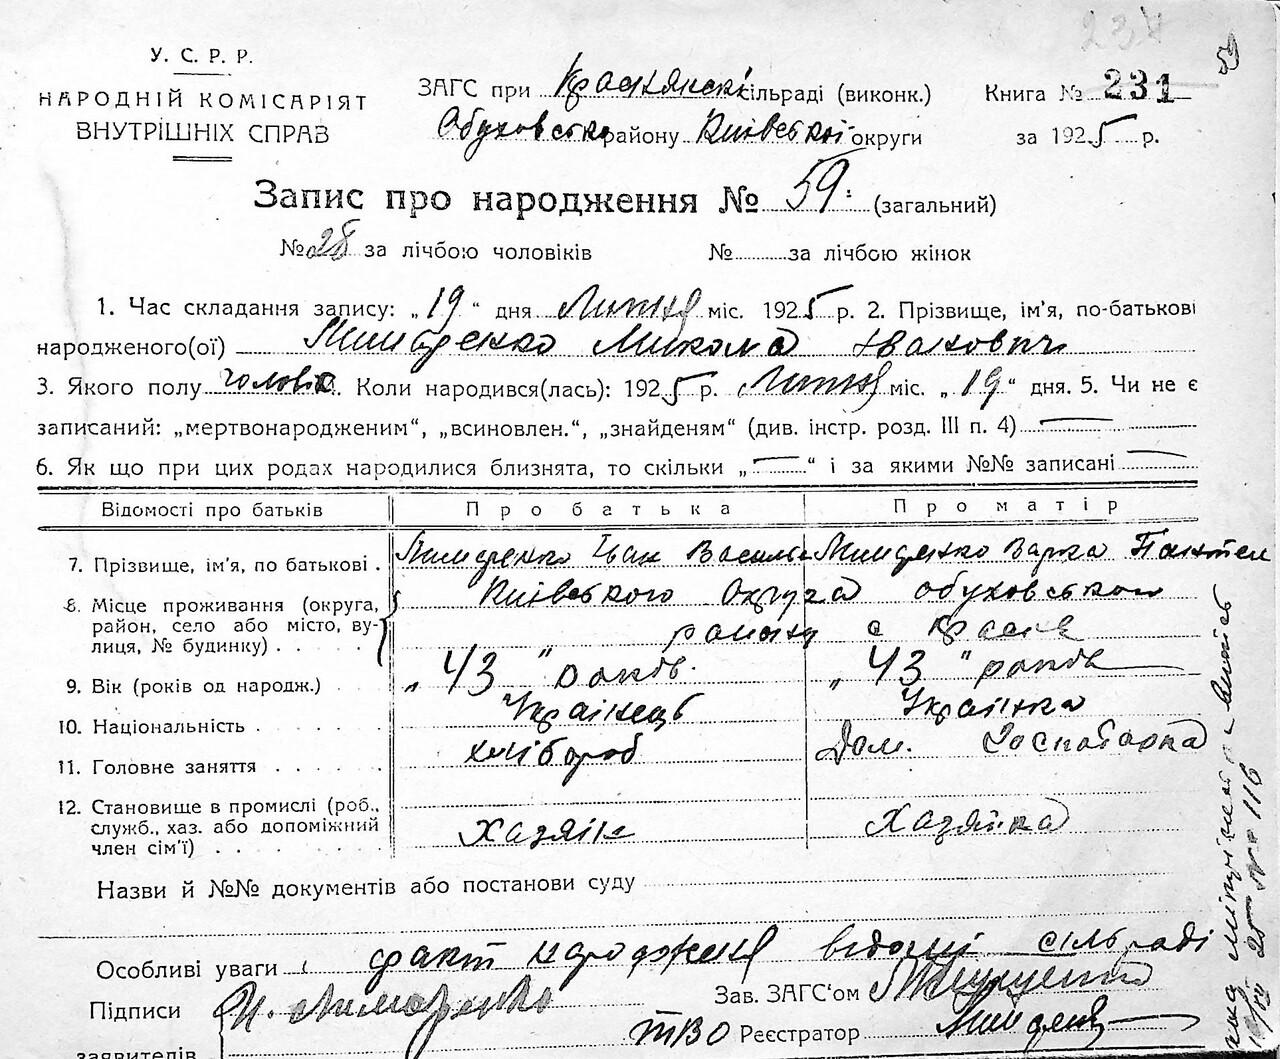 У. С. Р. Р.
НАРОДНІЙ КОМІСАРІЯТ
ВНУТРІШНІХ СПРАВ
ЗАГС при Краснянській сільраді (виконк.)
Обуховського району Київської округи
Книга № 231
за 1925 р.
Запис про народження № 59. (загальний)
№ 28 за лічбою чоловіків № за лічбою жінок
1. Час складання запису: „19“ дня Липня міс. 1925 р. 2. Прізвище, ім’я, по-батькові
народженого(ої) Микола Іванович
3. Якого полу чоловік. Коли народився(лась): 1925 р. Липня міс. „19“ дня. 5. Чи не є
записаний: „мертвонародженим“, „всиновлен.“, „знайденям“ (див. інстр. розд. III п. 4)
6. Як що при цих родах народилися близнята, то скільки „—“ і за якими №№ записані —
Відомості про батьків Про батька Про матір
7. Прізвище, ім’я, по батькові . Іван Василь Варка Пантел
8. Місце проживання (округа, район, село або місто, вулиця, № будинку) Київського Округа обуховського
району с Красне
9. Вік (років од народж.) „43“ років. „43“ років
10. Національність Українець Українка
11. Головне заняття хлібороб Дом. Господарка
12. Становище в промислі (роб., служб., хаз. або допоміжний член сім’ї) Хазяін Хазяйка
Назви й №№ документів або постанови суду
Особливі уваги факт народження відомий сільраді
Підписи
заявителів
Зав. ЗАГС‘ом
ТВО Реєстратор
59